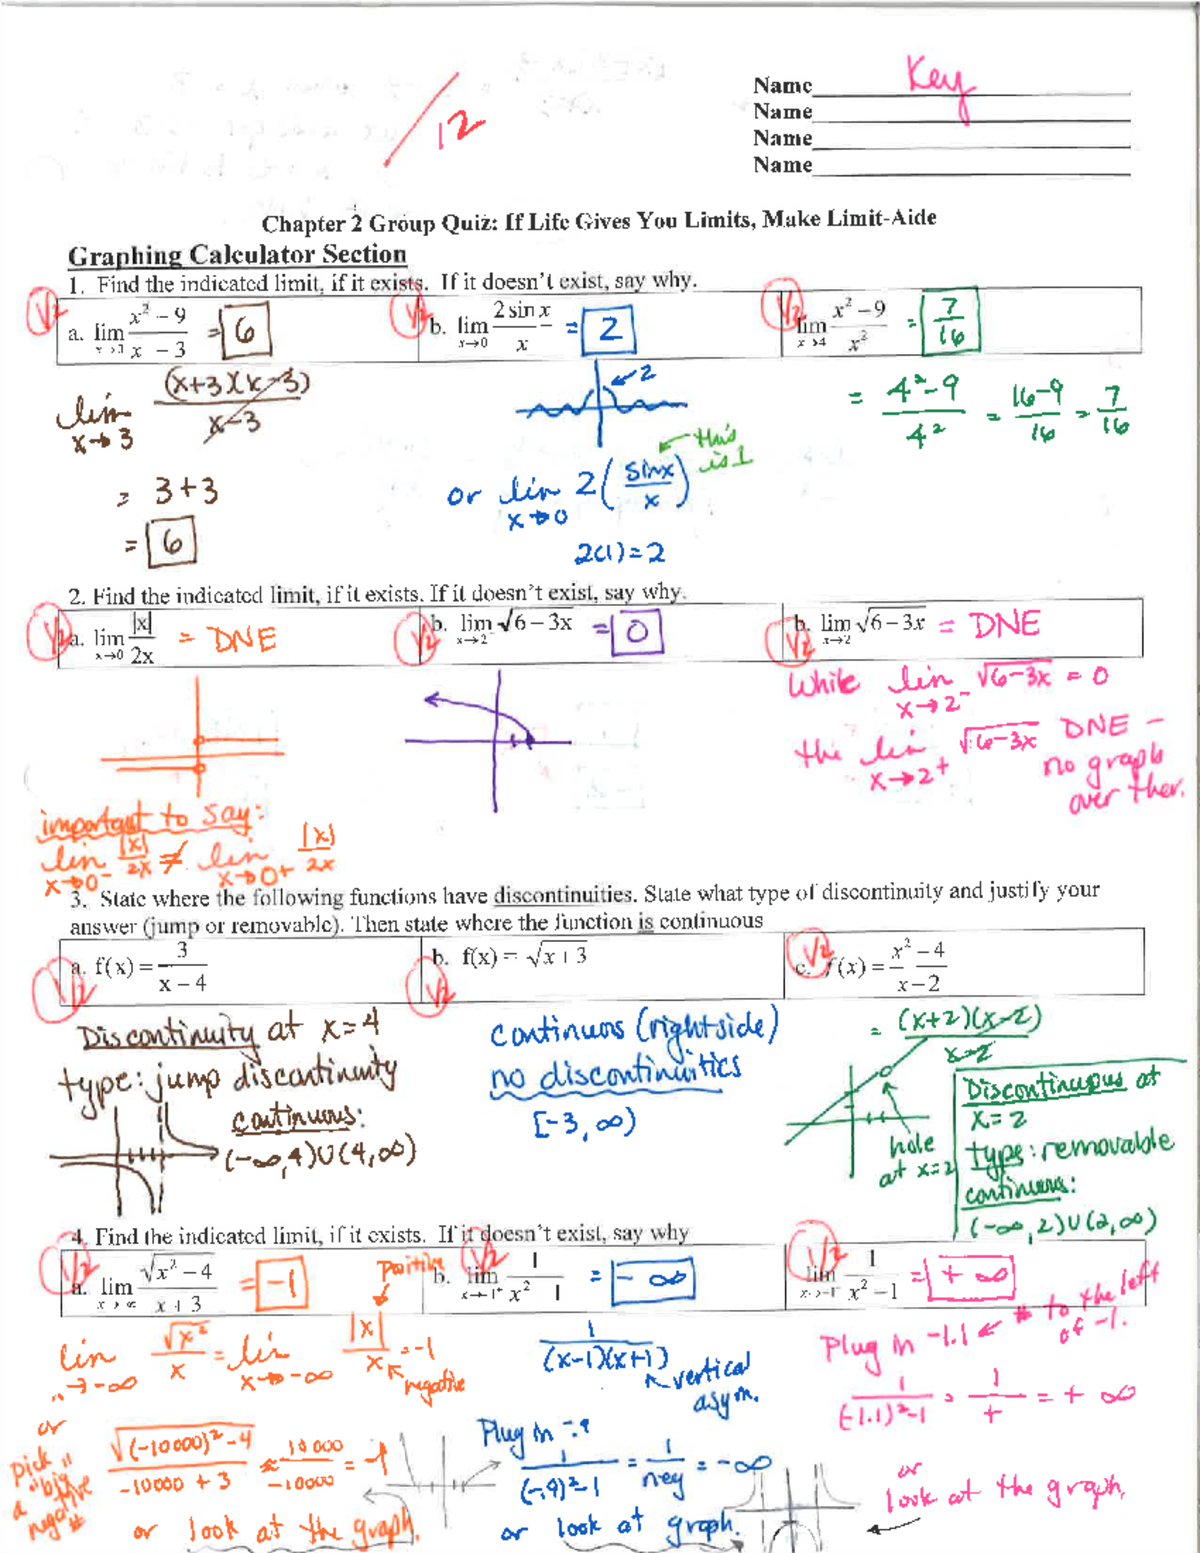 Name Key
Name
Name
Name
/12
Chapter 2 Group Quiz: If Life Gives You Limits, Make Limit-Aide
Graphing Calculator Section
1. Find the indicated limit, if it exists. If it doesn't exist, say why.
1/2 a. lim x→3 (x² – 9)/(x – 3) = 6
1/2 b. lim x→0 (2 sin x)/x = 2
1/2 lim x→4 (x² – 9)/x² = 7/16
lim x→3 (x+3)(x-3)/(x-3)
= 3+3
= 6
2
or lim x→0 2(sinx/x) this is 1
2(1)=2
= (4²-9)/4² = (16-9)/16 = 7/16
2. Find the indicated limit, if it exists. If it doesn't exist, say why.
1/2 a. lim x→0 |x|/2x = DNE
1/2 b. lim x→2⁻ √(6 – 3x) = 0
1/2 b. lim x→2 √(6 – 3x) = DNE
While lim x→2⁻ √(6-3x) = 0
the lim x→2+ √(6-3x) DNE –
no graph
over ther.
important to say:
lim x→0⁻ |x|/2x ≠ lim x→0+ |x|/2x
3. State where the following functions have discontinuities. State what type of discontinuity and justify your
answer (jump or removable). Then state where the function is continuous
1/2 a. f(x) = 3/(x – 4)
1/2 b. f(x) = √(x + 3)
1/2 c. f(x) = (x² – 4)/(x – 2)
Discontinuity at x=4
type: jump discontinuity
continuous:
(-∞,4)∪(4,∞)
continuous (right side)
no discontinuitics
[-3, ∞)
= (x+2)(x-2)/x-2
hole
at x=2
Discontinuous at
x=2
type: removable
continuous:
(-∞,2)∪(2,∞)
4. Find the indicated limit, if it exists. If it doesn't exist, say why
1/2 a. lim √(x² – 4)/(x + 3) = -1
1/2 b. lim x→-1⁺ 1/(x² 1) = -∞
1/2 lim x→-1⁻ 1/(x² – 1) = +∞
lim →-∞ √x²/x = lim x→-∞ |x|/x = -1
positive
negative
or
pick
a "big
negative"
#
√((-10000)²-4)/(-10000 + 3) ≈ 10000/-10000 = -1
or look at the graph.
1/((x-1)(x+1))
vertical
asym.
Plug in -.9
1/((-.9)²-1) = 1/neg = -∞
or look at graph.
Plug in -1.1 ← # to the left
of -1.
1/((-1.1)²-1) = 1/+ = +∞
or
look at the graph.